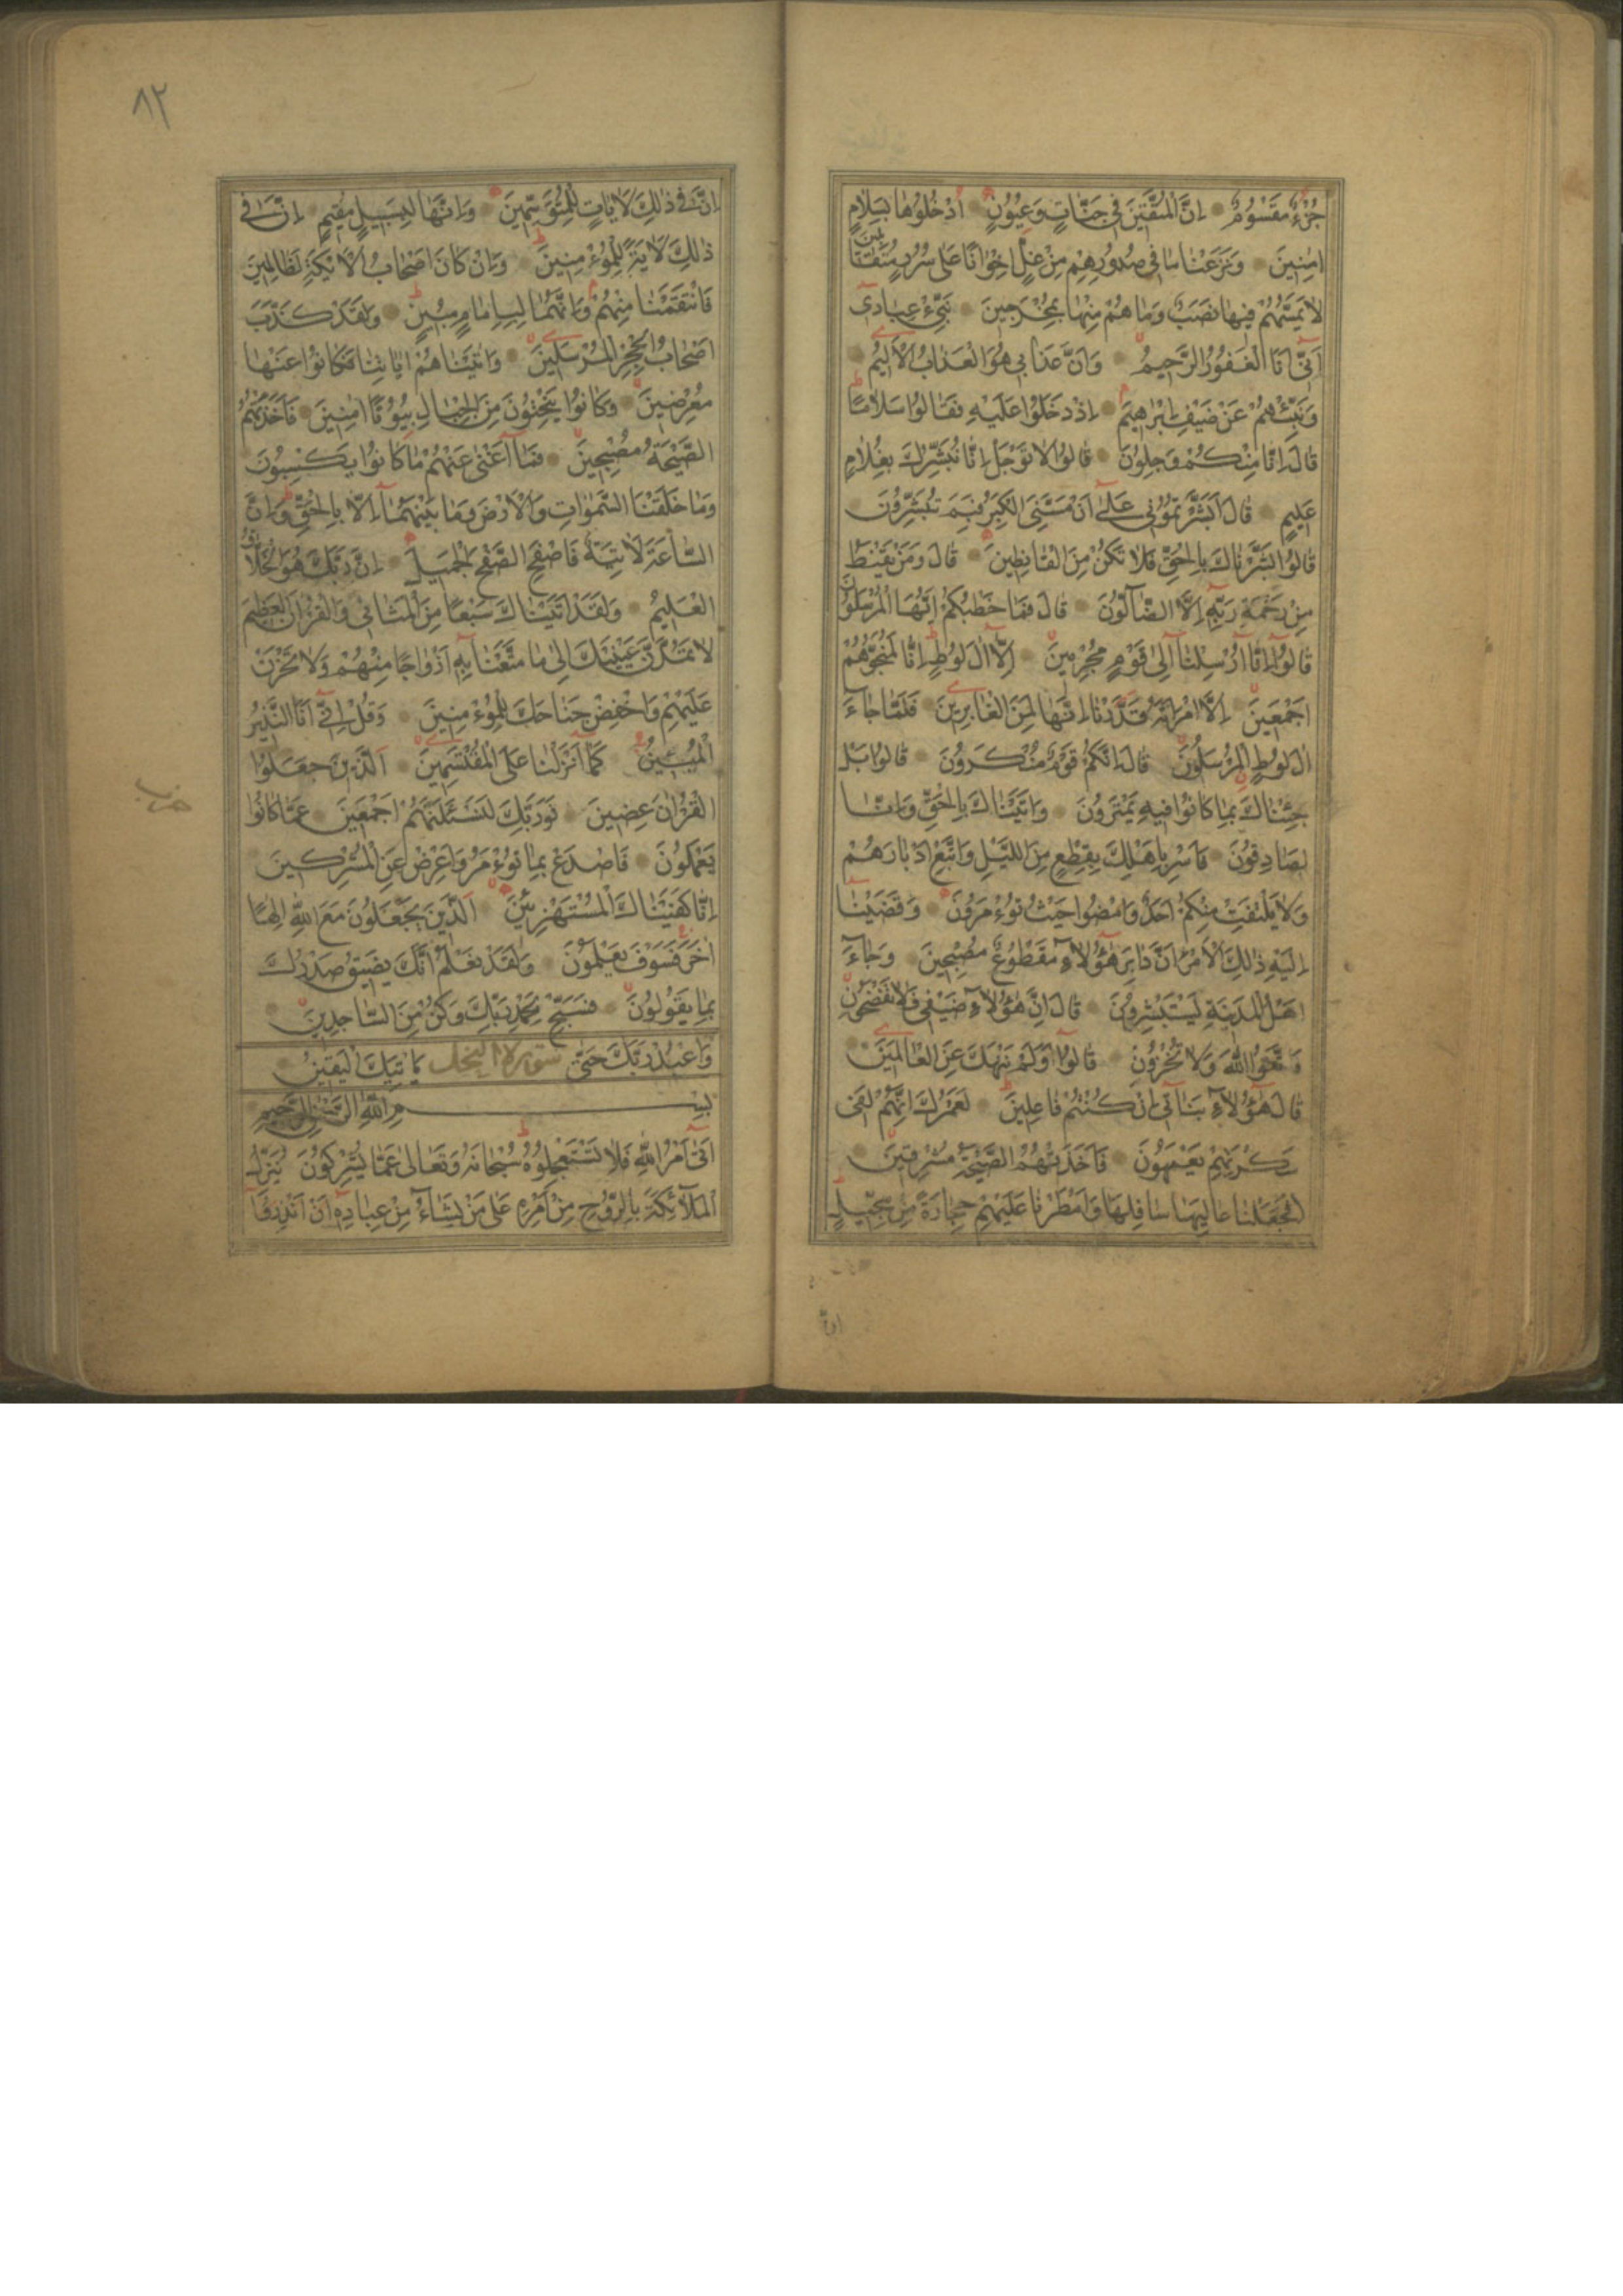 جُزْءٌ مَقْسُومٌ اِنَّ الْمُتَّقِينَ فِى جَنَّاتٍ وَعُيُونٍ اُدْخُلُوهَا بِسَلَامٍ
اٰمِنِينَ وَنَزَعْنَا مَا فِى صُدُورِهِمْ مِنْ غِلٍّ اِخْوَانًا عَلٰى سُرُرٍ مُتَقَابِلِينَ
لَا يَمَسُّهُمْ فِيهَا نَصَبٌ وَمَا هُمْ مِنْهَا بِمُخْرَجِينَ نَبِّئْ عِبَادِى
اَنِّى اَنَا الْغَفُورُ الرَّحِيمُ وَاَنَّ عَذَابِى هُوَ الْعَذَابُ الْاَلِيمُ
وَنَبِّئْهُمْ عَنْ ضَيْفِ اِبْرَاهِيمَ اِذْ دَخَلُوا عَلَيْهِ فَقَالُوا سَلَامًا
قَالَ اِنَّا مِنْكُمْ وَجِلُونَ قَالُوا لَا تَوْجَلْ اِنَّا نُبَشِّرُكَ بِغُلَامٍ
عَلِيمٍ قَالَ اَبَشَّرْتُمُونِى عَلٰى اَنْ مَسَّنِىَ الْكِبَرُ فَبِمَ تُبَشِّرُونَ
قَالُوا بَشَّرْنَاكَ بِالْحَقِّ فَلَا تَكُنْ مِنَ الْقَانِطِينَ قَالَ وَمَنْ يَقْنَطُ
مِنْ رَحْمَةِ رَبِّهِ اِلَّا الضَّآلُّونَ قَالَ فَمَا خَطْبُكُمْ اَيُّهَا الْمُرْسَلُونَ
قَالُوٓا اِنَّآ اُرْسِلْنَآ اِلٰى قَوْمٍ مُجْرِمِينَ اِلَّآ اٰلَ لُوطٍ اِنَّا لَمُنَجُّوهُمْ
اَجْمَعِينَ اِلَّا امْرَاَتَهُ قَدَّرْنَا اِنَّهَا لَمِنَ الْغَابِرِينَ فَلَمَّا جَآءَ
اٰلَ لُوطٍ الْمُرْسَلُونَ قَالَ اِنَّكُمْ قَوْمٌ مُنْكَرُونَ قَالُوا بَلْ
جِئْنَاكَ بِمَا كَانُوا فِيهِ يَمْتَرُونَ وَاَتَيْنَاكَ بِالْحَقِّ وَاِنَّا
لَصَادِقُونَ فَاَسْرِ بِاَهْلِكَ بِقِطْعٍ مِنَ اللَّيْلِ وَاتَّبِعْ اَدْبَارَهُمْ
وَلَا يَلْتَفِتْ مِنْكُمْ اَحَدٌ وَامْضُوا حَيْثُ تُؤْمَرُونَ وَقَضَيْنَا
اِلَيْهِ ذٰلِكَ الْاَمْرَ اَنَّ دَابِرَ هٰٓؤُلَآءِ مَقْطُوعٌ مُصْبِحِينَ وَجَآءَ
اَهْلُ الْمَدِينَةِ يَسْتَبْشِرُونَ قَالَ اِنَّ هٰٓؤُلَآءِ ضَيْفِى فَلَا تَفْضَحُونِ
وَاتَّقُوا اللّٰهَ وَلَا تُخْزُونِ قَالُوٓا اَوَلَمْ نَنْهَكَ عَنِ الْعَالَمِينَ
قَالَ هٰٓؤُلَآءِ بَنَاتِى اِنْ كُنْتُمْ فَاعِلِينَ لَعَمْرُكَ اِنَّهُمْ لَفِى
سَكْرَتِهِمْ يَعْمَهُونَ فَاَخَذَتْهُمُ الصَّيْحَةُ مُشْرِقِينَ
فَجَعَلْنَا عَالِيَهَا سَافِلَهَا وَاَمْطَرْنَا عَلَيْهِمْ حِجَارَةً مِنْ سِجِّيلٍ
٨٢
اِنَّ فِى ذٰلِكَ لَاٰيَاتٍ لِلْمُتَوَسِّمِينَ وَاِنَّهَا لَبِسَبِيلٍ مُقِيمٍ اِنَّ فِى
ذٰلِكَ لَاٰيَةً لِلْمُؤْمِنِينَ وَاِنْ كَانَ اَصْحَابُ الْاَيْكَةِ لَظَالِمِينَ
فَانْتَقَمْنَا مِنْهُمْ وَاِنَّهُمَا لَبِاِمَامٍ مُبِينٍ وَلَقَدْ كَذَّبَ
اَصْحَابُ الْحِجْرِ الْمُرْسَلِينَ وَاٰتَيْنَاهُمْ اٰيَاتِنَا فَكَانُوا عَنْهَا
مُعْرِضِينَ وَكَانُوا يَنْحِتُونَ مِنَ الْجِبَالِ بُيُوتًا اٰمِنِينَ فَاَخَذَتْهُمُ
الصَّيْحَةُ مُصْبِحِينَ فَمَآ اَغْنٰى عَنْهُمْ مَا كَانُوا يَكْسِبُونَ
وَمَا خَلَقْنَا السَّمٰوَاتِ وَالْاَرْضَ وَمَا بَيْنَهُمَآ اِلَّا بِالْحَقِّ وَاِنَّ
السَّاعَةَ لَاٰتِيَةٌ فَاصْفَحِ الصَّفْحَ الْجَمِيلَ اِنَّ رَبَّكَ هُوَ الْخَلَّاقُ
الْعَلِيمُ وَلَقَدْ اٰتَيْنَاكَ سَبْعًا مِنَ الْمَثَانِى وَالْقُرْاٰنَ الْعَظِيمَ
لَا تَمُدَّنَّ عَيْنَيْكَ اِلٰى مَا مَتَّعْنَا بِهِ اَزْوَاجًا مِنْهُمْ وَلَا تَحْزَنْ
عَلَيْهِمْ وَاخْفِضْ جَنَاحَكَ لِلْمُؤْمِنِينَ وَقُلْ اِنِّىٓ اَنَا النَّذِيرُ
الْمُبِينُ كَمَآ اَنْزَلْنَا عَلَى الْمُقْتَسِمِينَ اَلَّذِينَ جَعَلُوا
الْقُرْاٰنَ عِضِينَ فَوَرَبِّكَ لَنَسْئَلَنَّهُمْ اَجْمَعِينَ عَمَّا كَانُوا
يَعْمَلُونَ فَاصْدَعْ بِمَا تُؤْمَرُ وَاَعْرِضْ عَنِ الْمُشْرِكِينَ
اِنَّا كَفَيْنَاكَ الْمُسْتَهْزِئِينَ اَلَّذِينَ يَجْعَلُونَ مَعَ اللّٰهِ اِلٰهًا
اٰخَرَ فَسَوْفَ يَعْلَمُونَ وَلَقَدْ نَعْلَمُ اَنَّكَ يَضِيقُ صَدْرُكَ
بِمَا يَقُولُونَ فَسَبِّحْ بِحَمْدِ رَبِّكَ وَكُنْ مِنَ السَّاجِدِينَ
وَاعْبُدْ رَبَّكَ حَتّٰى سورة النحل يَاْتِيَكَ الْيَقِينُ
بِسْمِ اللّٰهِ الرَّحْمٰنِ الرَّحِيمِ
اَتٰٓى اَمْرُ اللّٰهِ فَلَا تَسْتَعْجِلُوهُ سُبْحَانَهُ وَتَعَالٰى عَمَّا يُشْرِكُونَ يُنَزِّلُ
الْمَلٰٓئِكَةَ بِالرُّوحِ مِنْ اَمْرِهِ عَلٰى مَنْ يَشَآءُ مِنْ عِبَادِهِ اَنْ اَنْذِرُوٓا
حزب